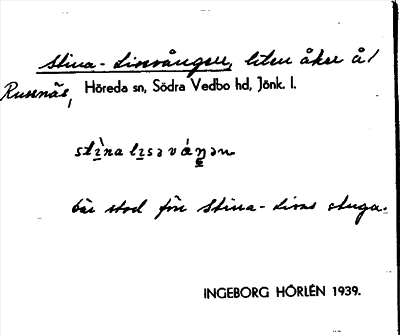 Stina-Lisavången, liten åker å/
Runnäs, Höreda sn, Södra Vedbo hd, Jönk. l.
stìna lisa váŋən
där stod för Stina-Lisas stuga.
INGEBORG HÖRLÉN 1939.